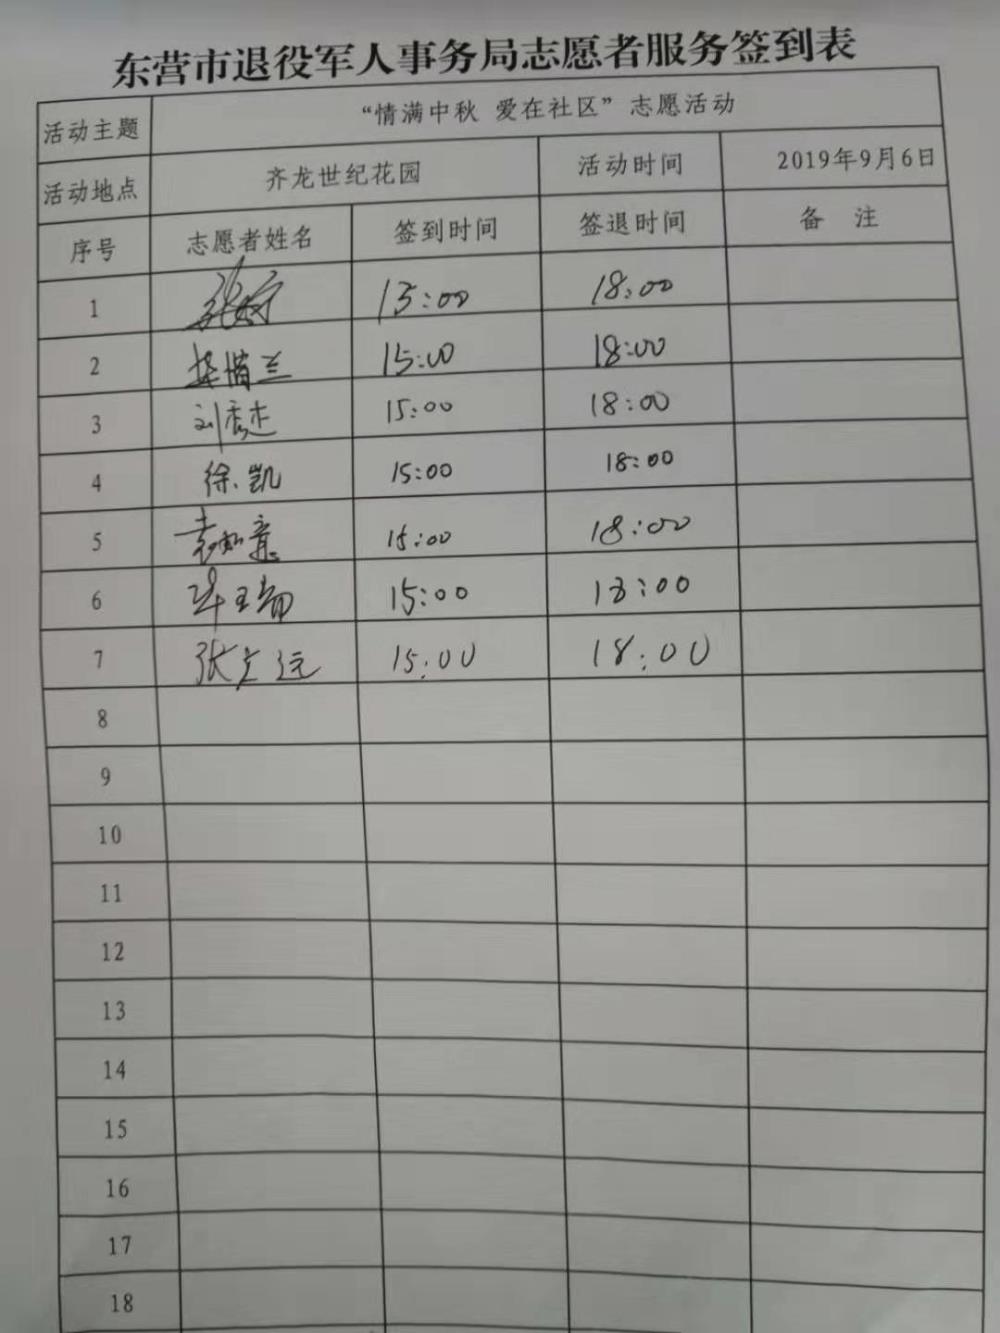 东营市退役军人事务局志愿者服务签到表
活动主题 “情满中秋 爱在社区”志愿活动
活动地点 齐龙世纪花园 活动时间 2019年9月6日
序号 志愿者姓名 签到时间 签退时间 备 注
1 15:00 18:00
2 15:00 18:00
3 刘 15:00 18:00
4 徐凯 15:00 18:00
5 袁如意 15:00 18:00
6 15:00 18:00
7 张立远 15:00 18:00
8
9
10
11
12
13
14
15
16
17
18